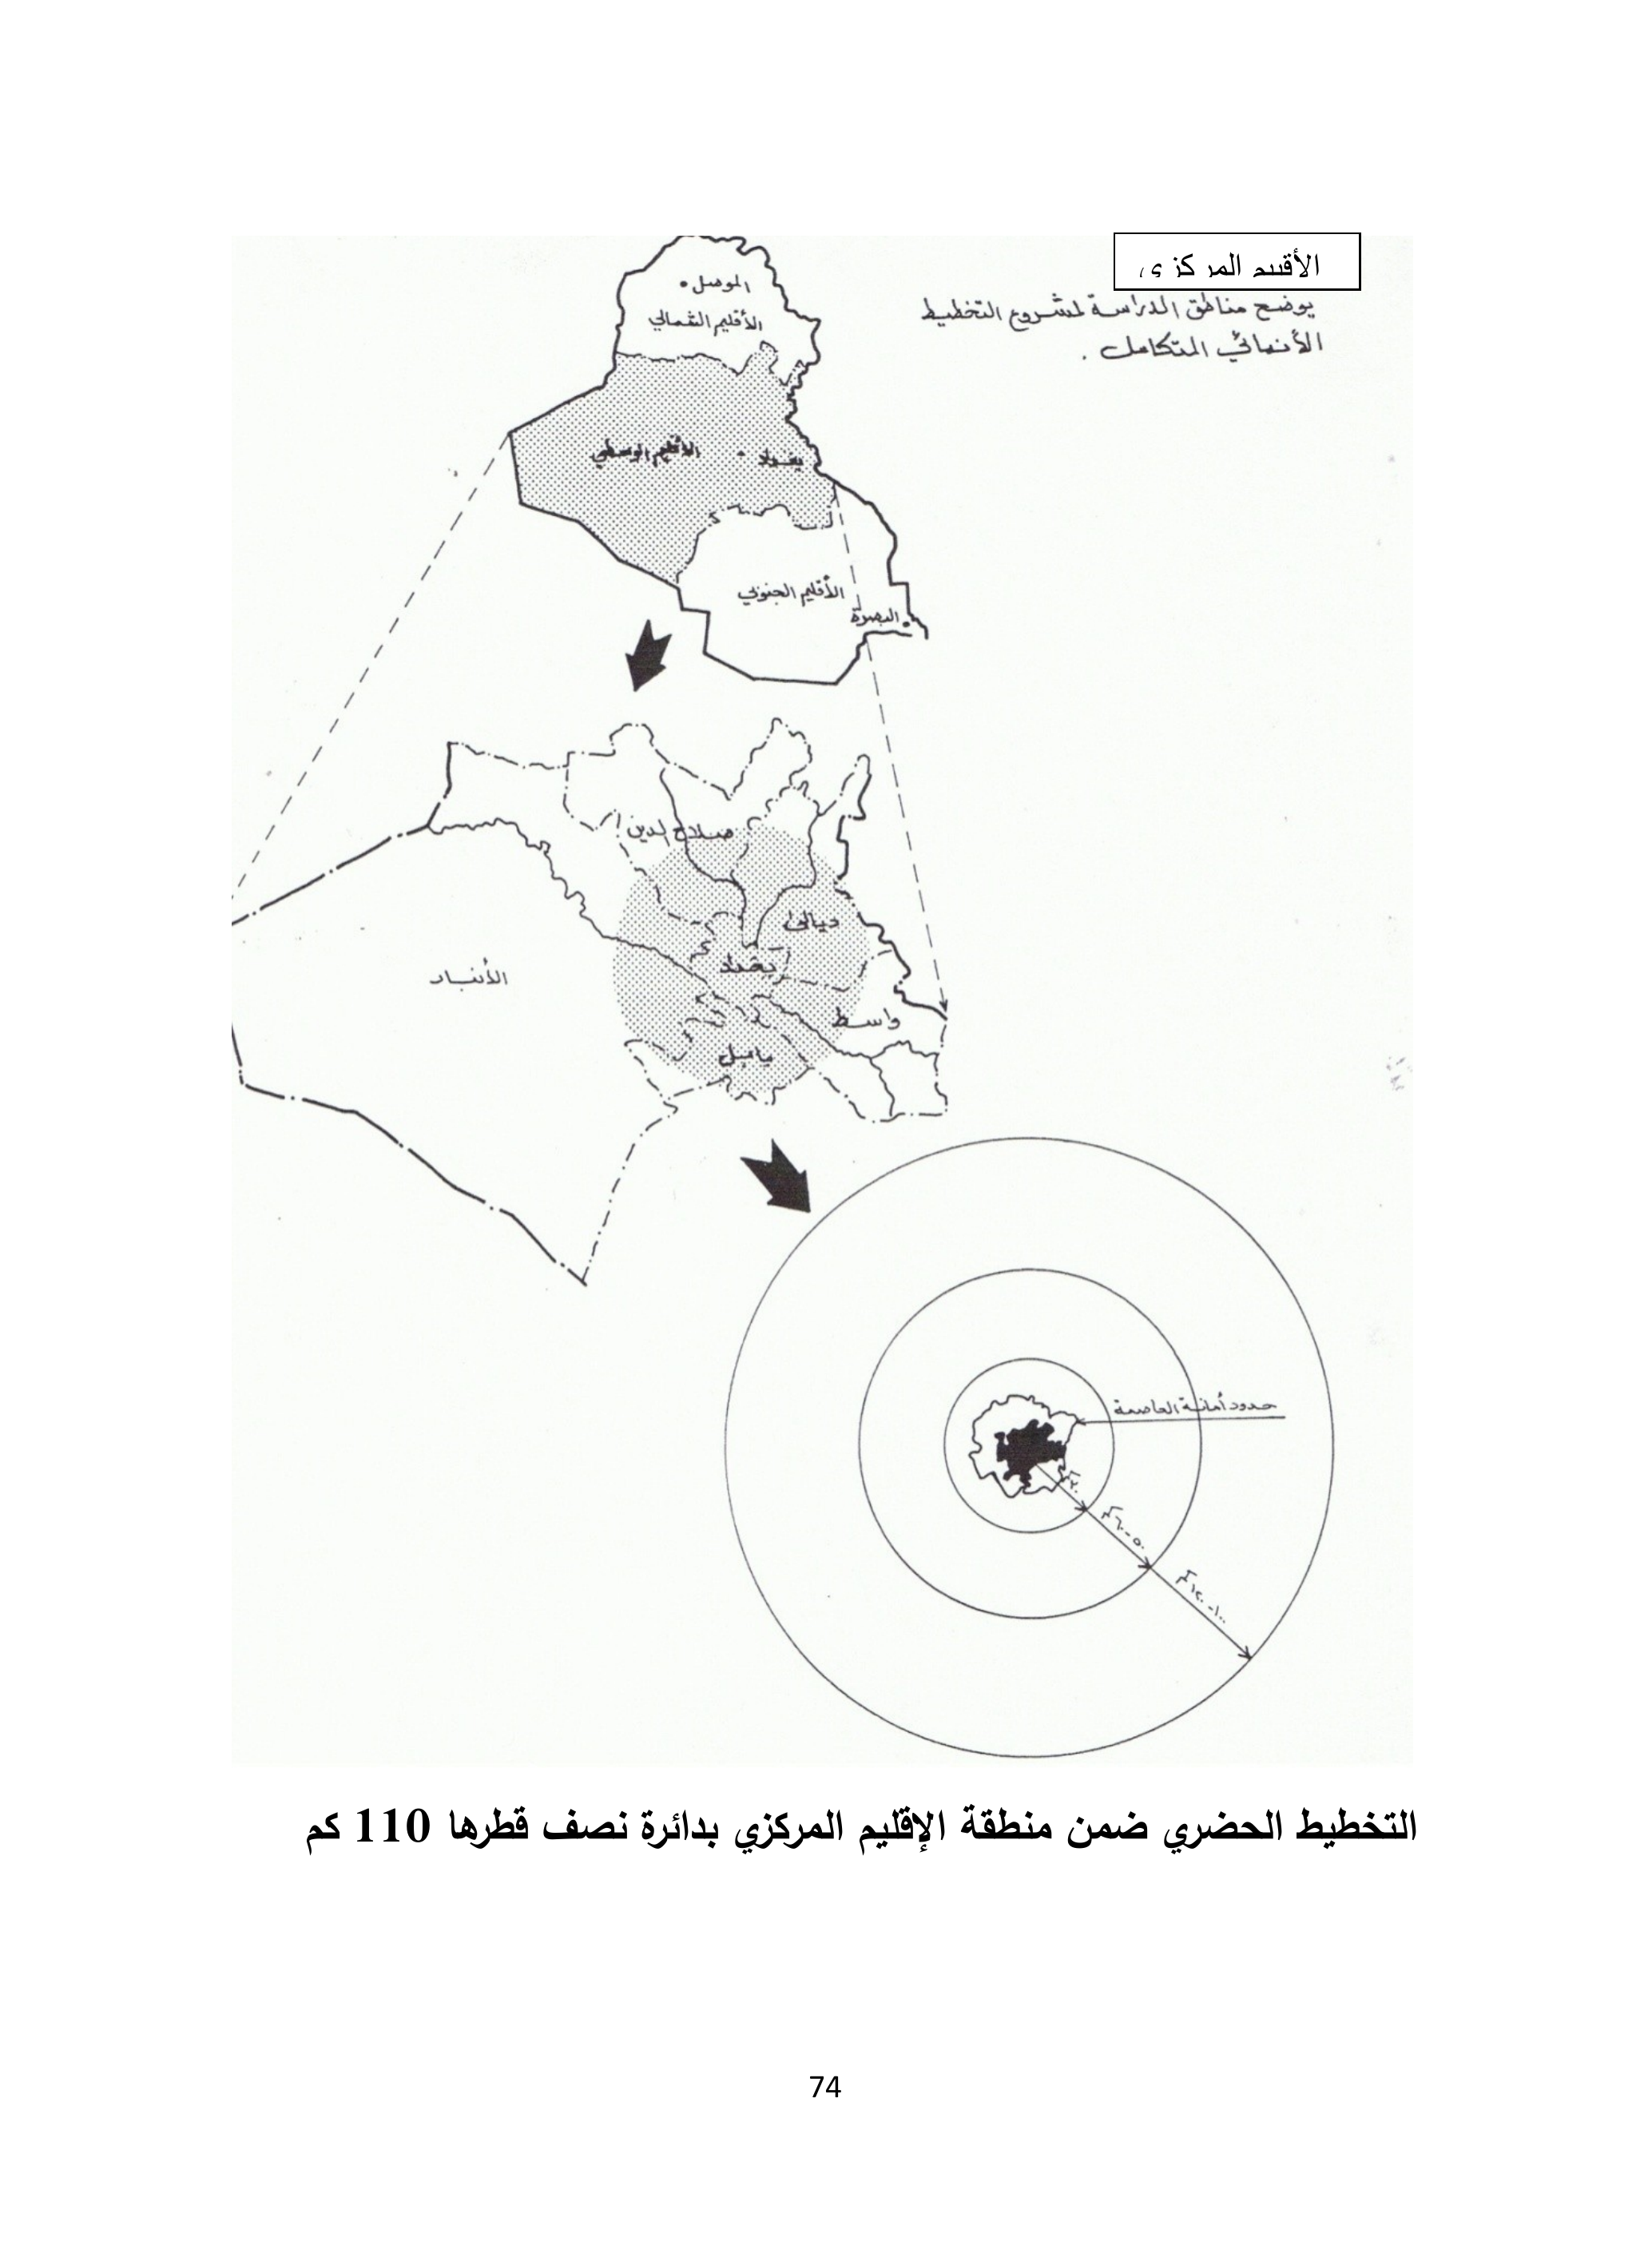 الأقليم المركزي
يوضح مناطق الدراسة لمشروع التخطيط
الأنمائي المتكامل .
الموصل
الأقليم الشمالي
الأقليم الوسطي
بغداد
الأقليم الجنوبي
البصرة
صلاح الدين
ديالى
بغداد
الأنبار
واسط
بابل
حدود أمانة العاصمة
٥٠-٦٠ كم
١٠٠-١٢٠ كم
التخطيط الحضري ضمن منطقة الإقليم المركزي بدائرة نصف قطرها 110 كم
74